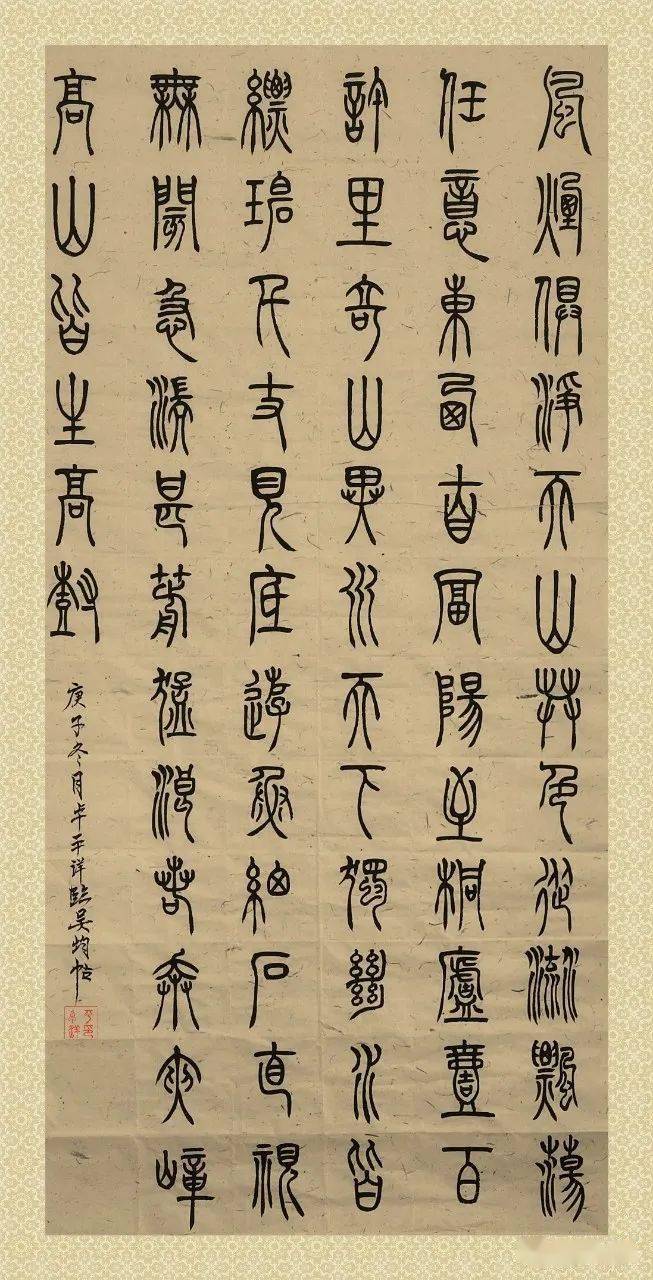 風煙俱淨天山共色從流飄蕩
任意東西自富陽至桐廬壹百
許里奇山異水天下獨絕水皆
縹碧千丈見底游魚細石直視
無閡急湍甚箭猛浪若奔夾嶂
高山皆生高樹
庚子冬月卓平详臨吳均帖